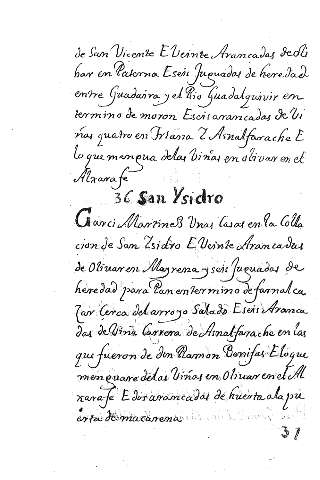 de San Vicente E Veinte Arancadas de oli
har en Paterna E seis Juguadas de heredad
entre Guadaira y el Rio Guadalquivir en
termino de moron E seis arrancadas de Vi
ñas quatro en Triana Z Aznalfarache E
lo que mengua de las Viñas en olivar en el
Alxarafe
36 San Ysidro
Garci Martines Unas Casas en la Colla
cion de San Isidro E Veinte Arancadas
de Olivar en Mayrena y seis Juguadas de
heredad para Pan en termino de farnal ca
zar Cerca del arroyo Salado E seis Aranca
das de Viña Carrera de Aznalfarache en las
que fueron de don Ramon Bonifas E lo que
menguare de las Viñas en Olivar en el Al
xarafe E dos arancadas de huerta a la pu
erta de macarena
37